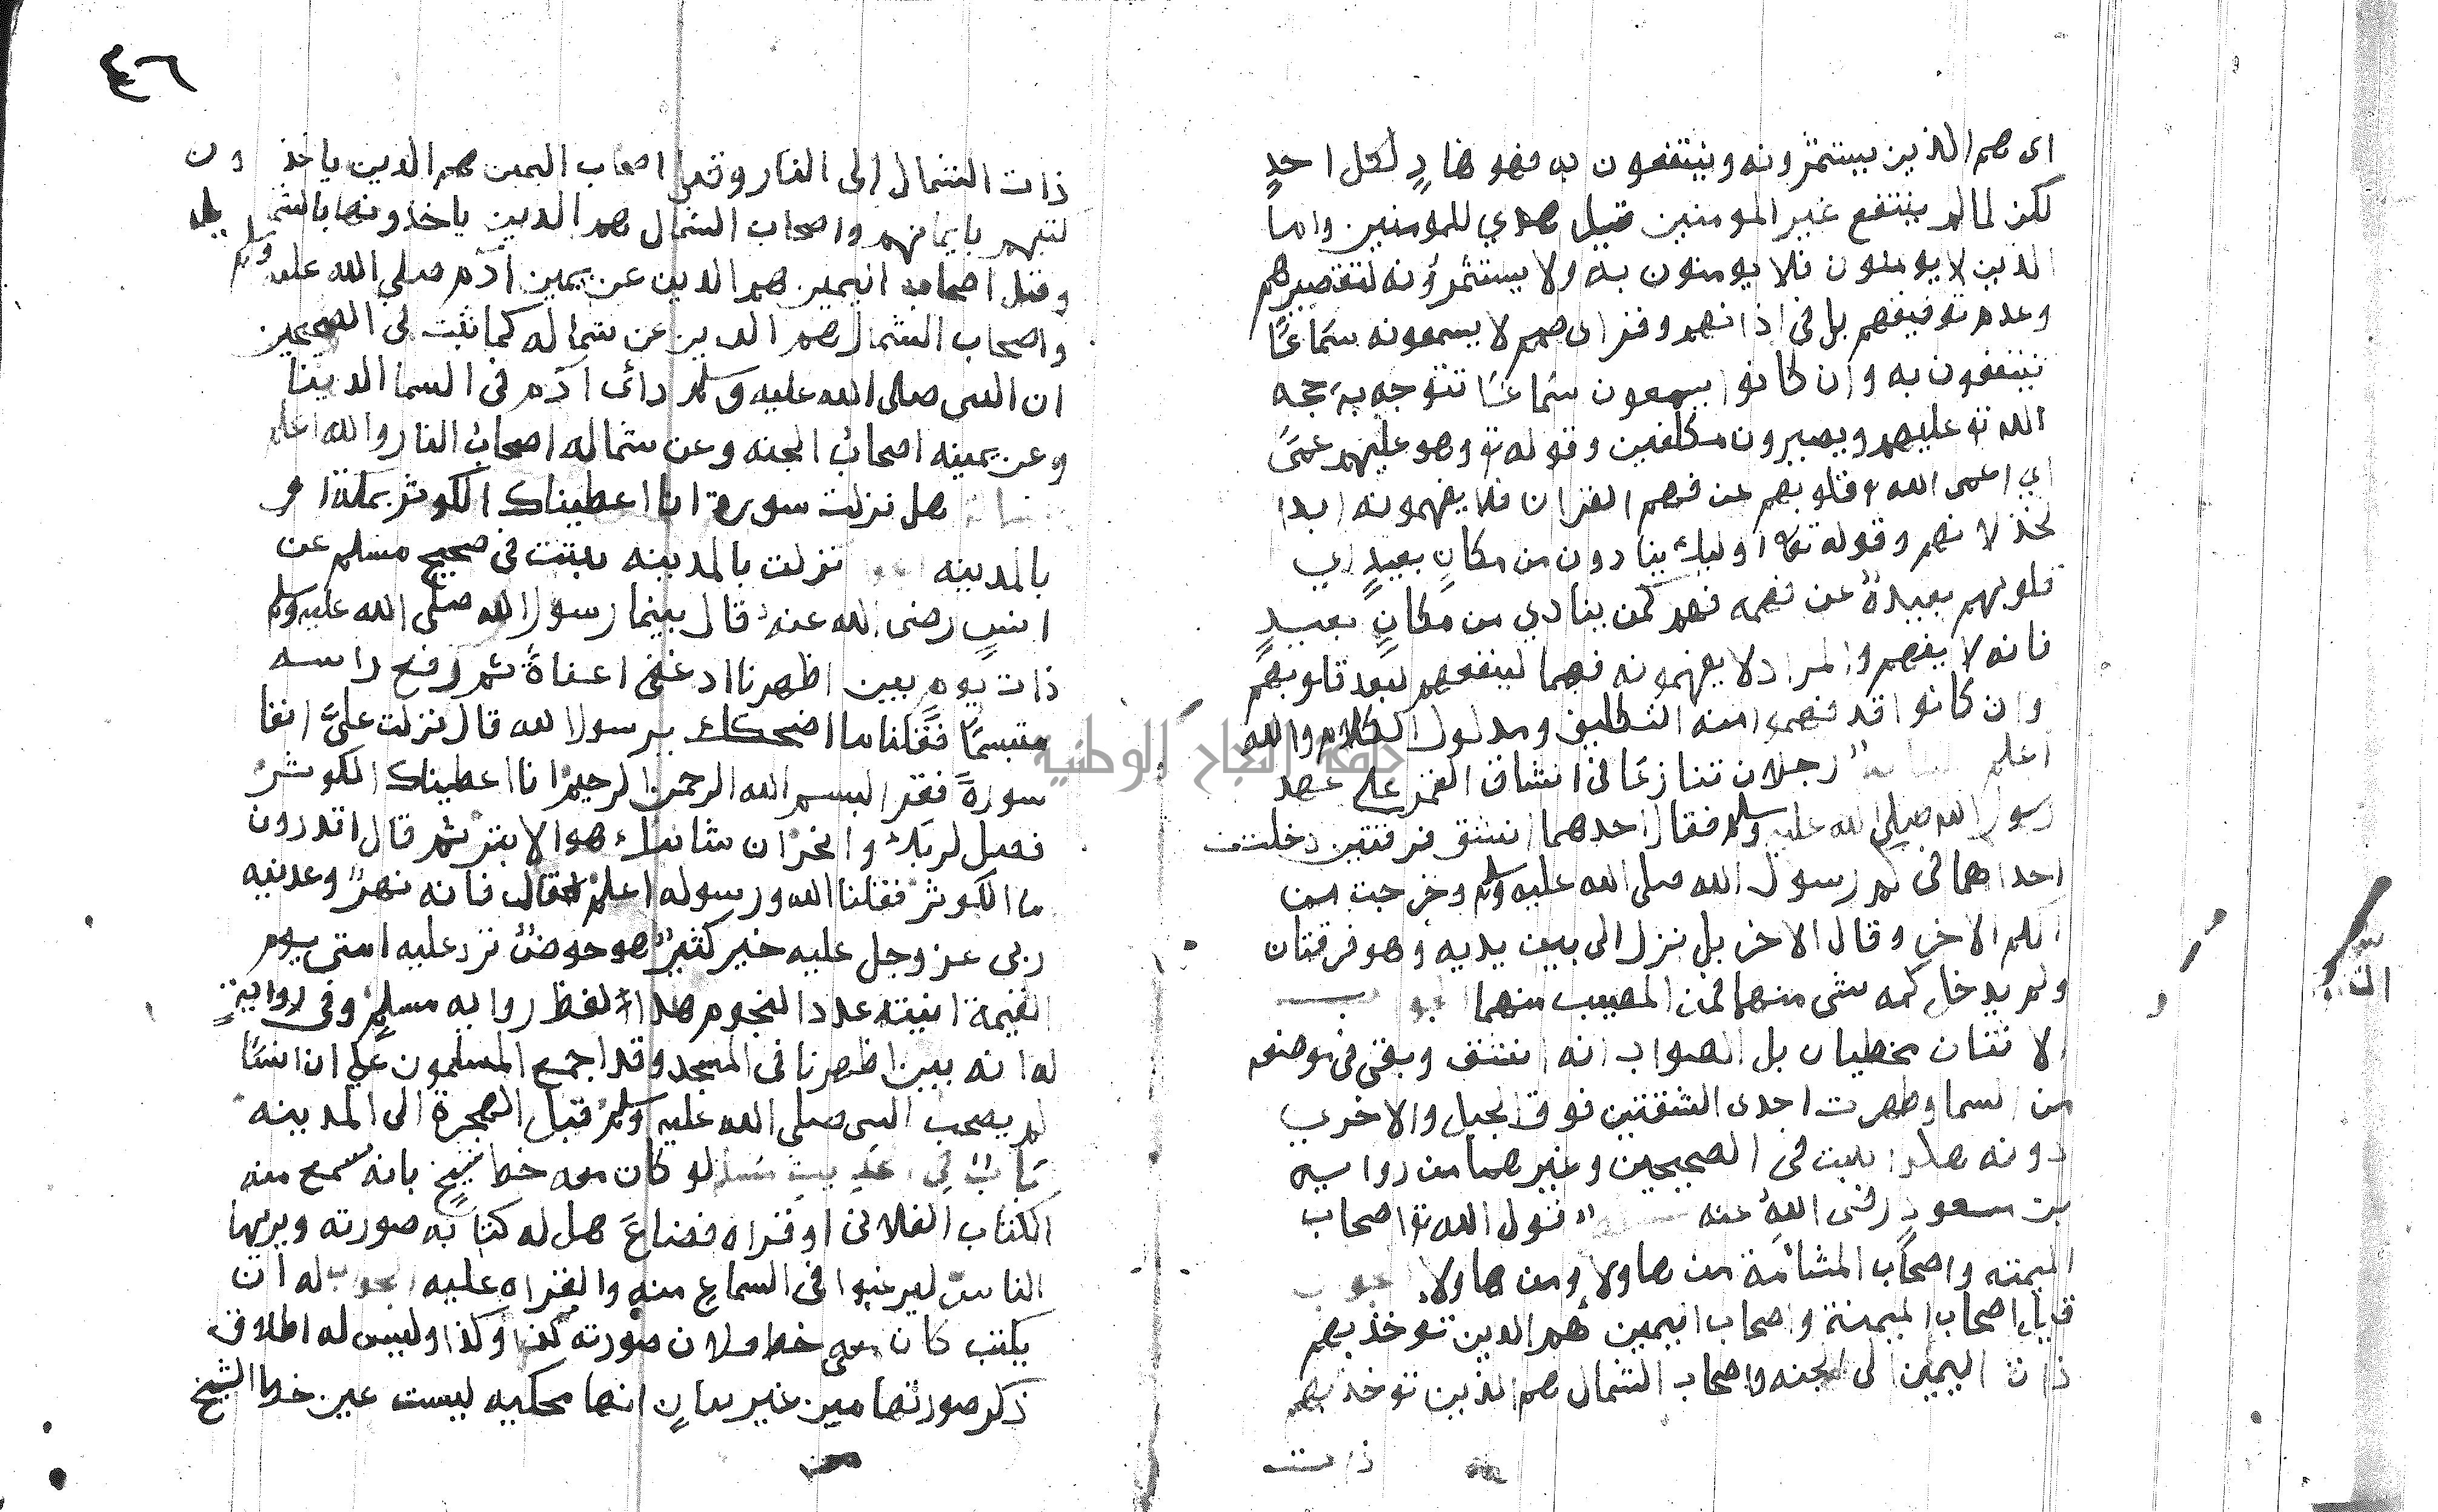 اى هم الذين يستثمرونه وينتفعون به فهو هادٍ لكل احدٍ
لكن لما لم ينتفع غير المومنين قيل هدي للمومنين واما
الذين لا يومنون فلا يومنون به ولا يستثمرونه لتقصيرهم
وعدم توفيقهم بل في اذانهم وقر اى صمم لا يسمعونه سماعًا
ينتفعون به وان كانوا يسمعون سماعًا تتوجه به حجه
الله تع عليهم ويصيرون مكلفين وقوله تع وهو عليهم عمىً
اي اعمى الله قلوبهم عن فهم القران فلا يفهمونه ابدا
لخذلانهم وقوله تع اوليك ينادون من مكانٍ بعيدٍ اي
قلوبهم بعيدة عن فهمه فهم كمن ينادي من مكانٍ بعيدٍ
فانه لا يفهم والمراد لا يفهمونه فهما لينفعهم لبعد قلوبهم
وان كانوا قد فهموا منه التكليف ومدلول الكلام والله
اعلم رجلان تنازعا في انشقاق القمر علي عهد
رسول الله صلي الله عليه وسلم فقال احدهما انشق فرقتين دخلت
احداهما في كم رسول الله صلى الله عليه وسلم وخرجت من
الكم الاخر وقال الاخر بل نزل الى بين يديه وهو فرقتان
ولم يدخل كمه شى منهما فمن المصيب منهما
الاثنان مخطيان بل الصواب انه انشق وبقى في موضعه
من السما وظهرت احدى الشقتين فوق الجبل والاخري
دونه هكذا ثبت في الصحيحين وغيرهما من روايه
بن مسعود رضى الله عنه قول الله تع اصحاب
الميمنه واصحاب المشامة من هاولا ومن هاولا
قيل اصحاب الميمنة واصحاب اليمين هم الدين توخذ بهم
ذات اليمين الى الجنه واصحاب الشمال هم الذين توخذ بهم
ذات
ذات الشمال إلى النار وقيل اصحاب اليمين هم الدين ياخذون
كتبهم بايمانهم واصحاب الشمال هم الدين ياخذونها بالشمال
وقيل اصحاب اليمين هم الدين عن يمين ادم صلي الله عليه وسلم
واصحاب الشمال هم الدين عن شماله كما ثبت في الصحيحين
ان النبى صلى الله عليه وسلم راى ادم في السما الدينا
وعن يمينه اصحاب الجنه وعن شماله اصحاب النار والله اعلم
هل نزلت سورة انا اعطيناك الكوثر بمكة او
بالمدينه نزلت بالمدينه ثبت في صحيح مسلم عن
انسٍ رضى الله عنه قال بينما رسول الله صلى الله عليه وسلم
ذات يوم بين اظهرنا اد غفى اغفاةً ثم رفع راسه
متبسمًا فقلنا ما اضحكك يرسول الله قال نزلت عليَّ انفا
سورة فقرا بسم الله الرحمن الرحيم انا اعطيناك الكوثر
فصل لربك وانحر ان شانيك هو الابتر ثم قال اتدرون
ما الكوثر فقلنا الله ورسوله اعلم قال فانه نهر وعدنيه
ربى عز وجل عليه خير كثير هو حوض ترد عليه امتي يوم
القيمة انيته عدد النجوم هدا لفظ روايه مسلم وفي رواية
له انه بين اظهرنا في المسجد وقد اجمع المسلمون علي ان انسًا
لم يصحب النبى صلي الله عليه وسلم قبل الهجرة الى المدينه
لو كان معه خط شيخ بانه سمع منه
الكتاب الفلانى او قراه فضاع هل له كتابه صورته ويريها
الناس ليرغبوا في السماع منه والقراه عليه له ان
يكتب كان معى خط فلان صورته كذا وكذا وليس له اطلاق
ذكر صورتها من غير بيان انها محكيه ليست عين خط الشيخ